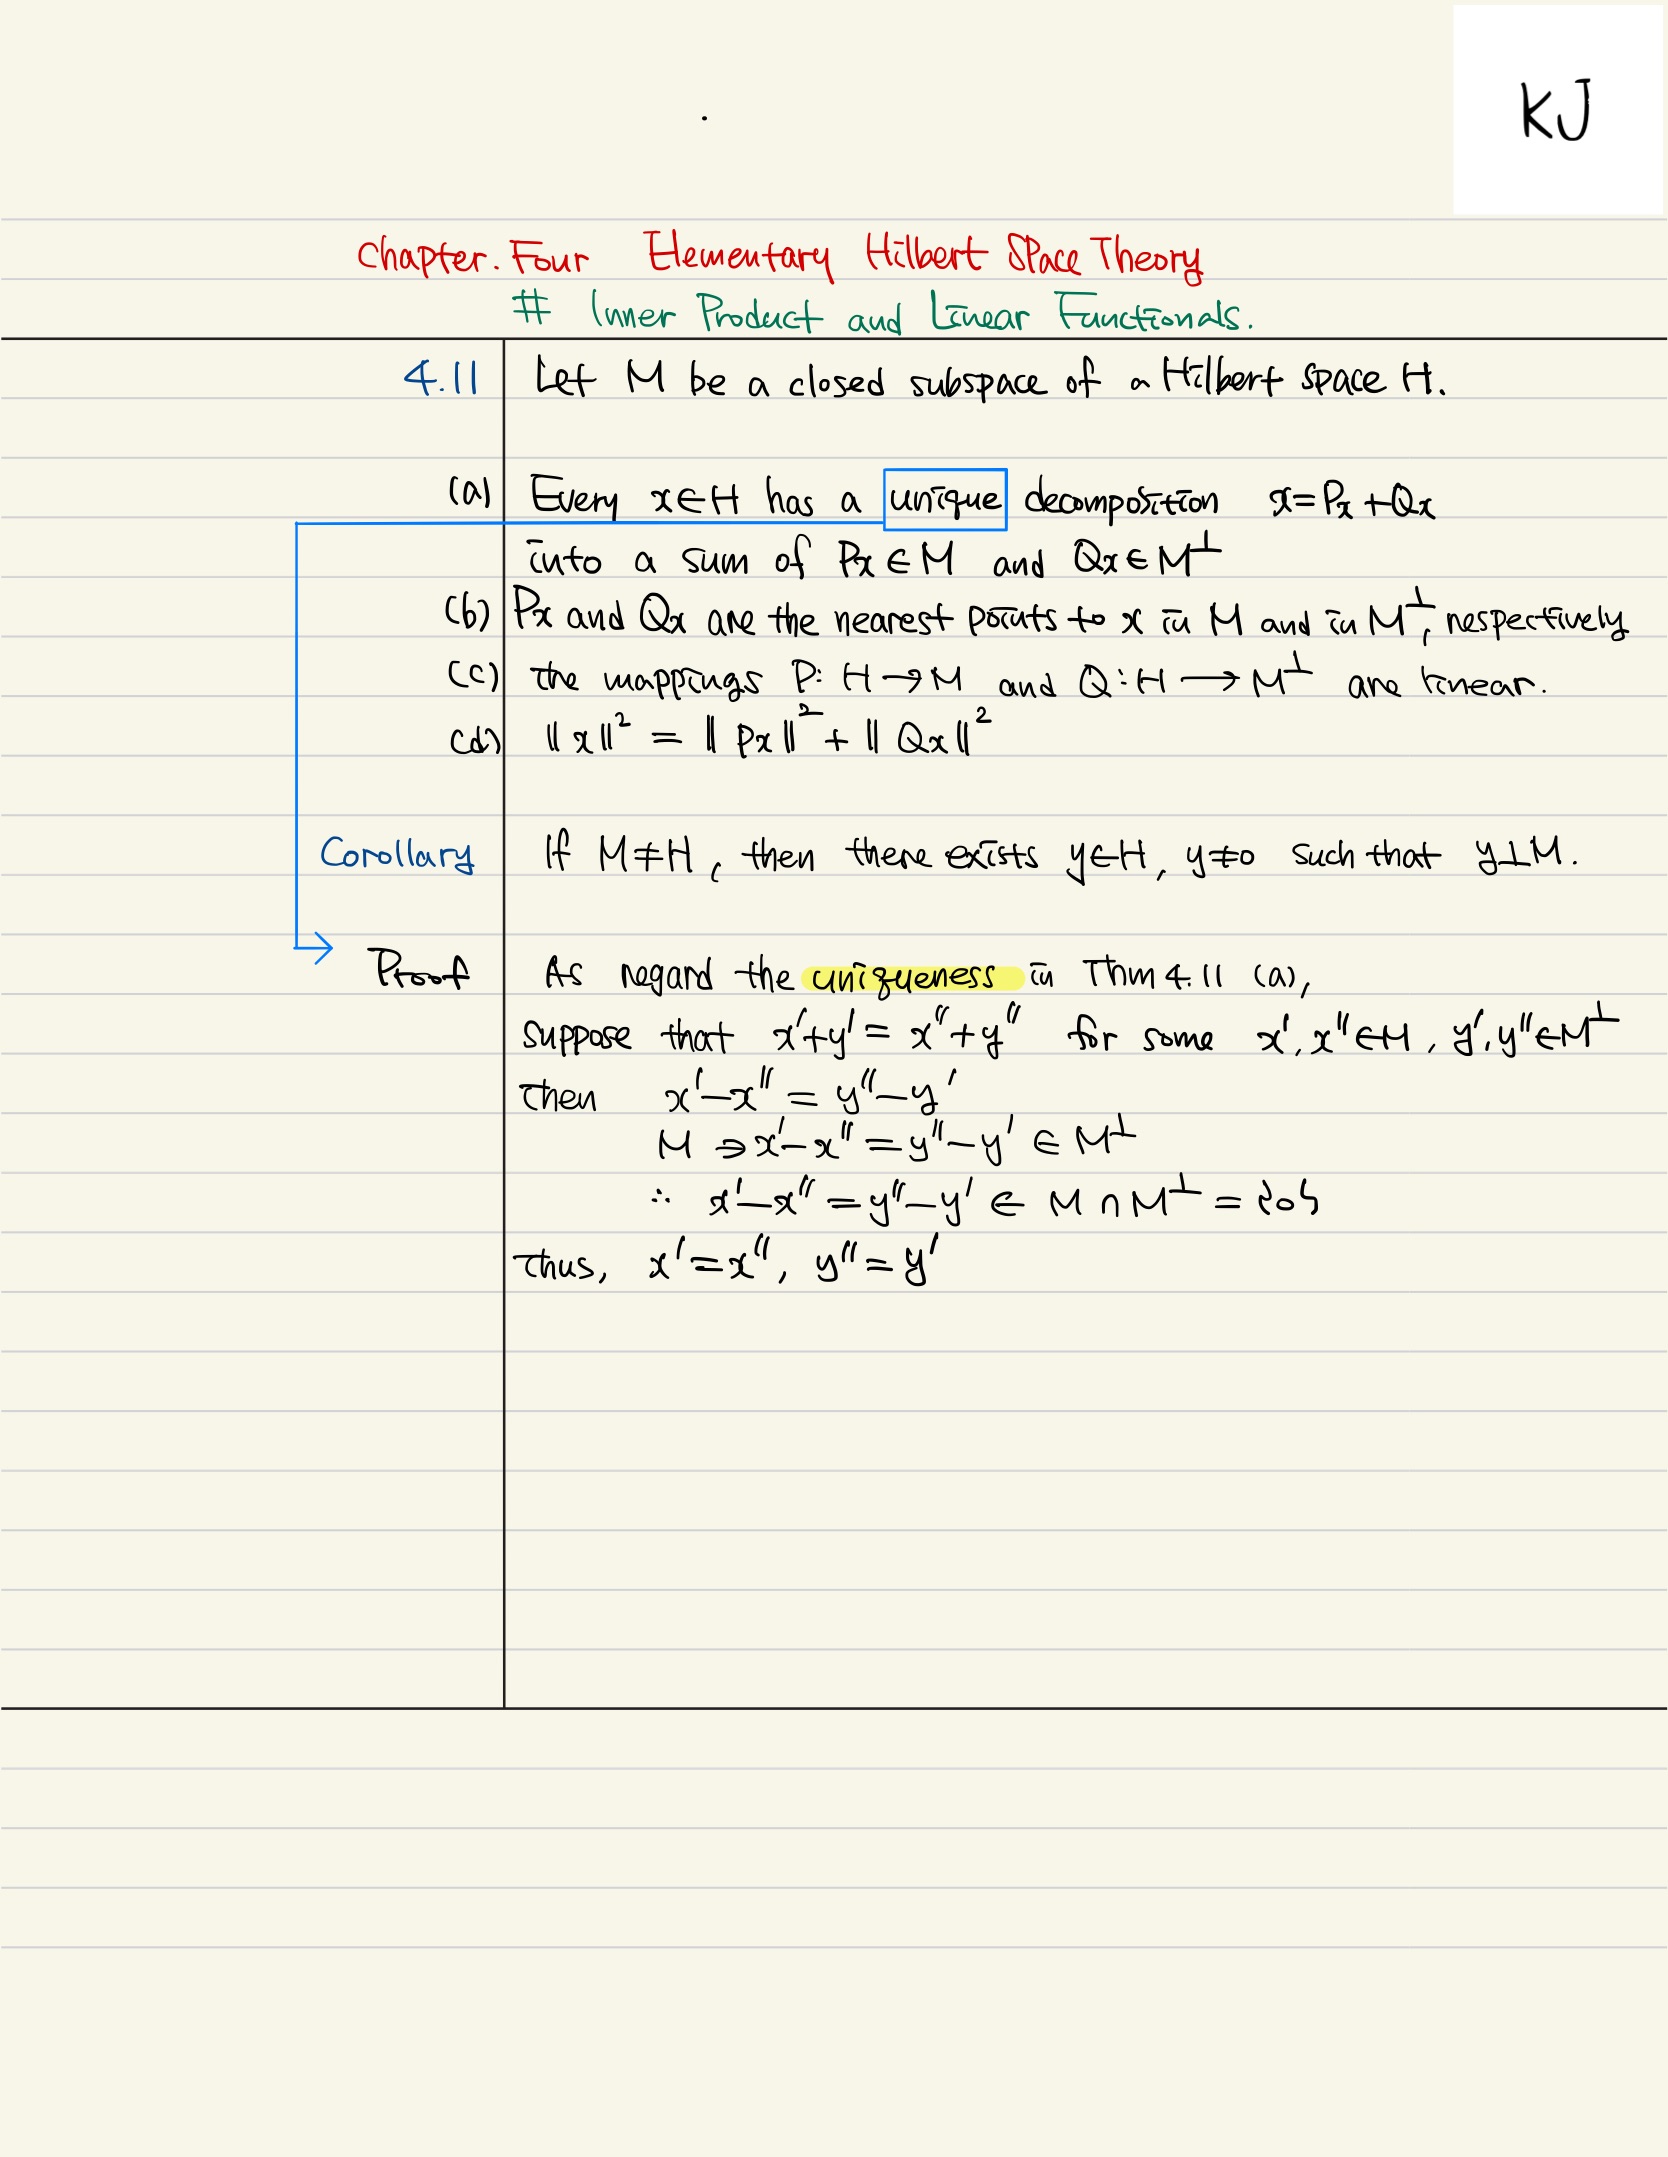 KJ
Chapter. Four Elementary Hilbert Space Theory
# Inner Product and Linear Functionals.
4.11 Let M be a closed subspace of a Hilbert space H.
(a) Every x∈H has a unique decomposition x=Px+Qx
into a sum of Px∈M and Qx∈M⊥
(b) Px and Qx are the nearest points to x in M and in M⊥, respectively
(c) the mappings P: H→M and Q: H→M⊥ are linear.
(d) ‖x‖² = ‖Px‖² + ‖Qx‖²
Corollary If M≠H, then there exists y∈H, y≠0 such that y⊥M.
Proof As regard the uniqueness in Thm 4.11 (a),
suppose that x'+y' = x''+y'' for some x', x''∈M, y', y''∈M⊥
then x'-x'' = y''-y'
M ∋ x'-x'' = y''-y' ∈ M⊥
∴ x'-x'' = y''-y' ∈ M ∩ M⊥ = {0}
Thus, x'=x'', y''=y'